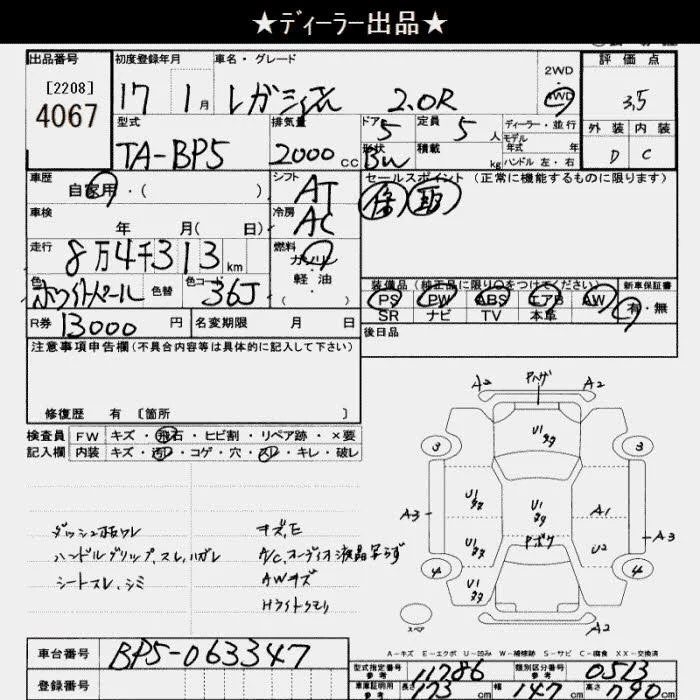 ★ディーラー出品★
出品番号 初度登録年月 車名・グレード 評価点
[2208] 4067 17 1月 レガシィ 2.0R 2WD 4WD 3.5
型式 排気量 ドア 定員 ディーラー・並行 外装 内装
TA-BP5 2000cc 5 5人 モデル年式 年 D C
形状 BW 積載 kg ハンドル 左・右
車歴 シフト セールスポイント (正常に機能するものに限ります)
自家用・( ) AT
車検 冷房
年 月( 日) AC
走行 燃料
8万4千313km ガソリン
色 色替 色コード 軽油 装備品(純正品に限り○をつけてください) 新車保証書
ホワイトパール 36J ( ) PS PW ABS エアB AW 有・無
R券 13000円 名変期限 月 日 SR ナビ TV 本革
注意事項申告欄(不具合内容等は具体的に記入して下さい) 後日品
修復歴 有 [箇所 ]
検査員 FW キズ・飛石・ヒビ割・リペア跡・×要
記入欄 内装 キズ・汚れ・コゲ・穴・スレ・キレ・破レ
A2 A2
U1 U1 U1 U1 U1
A3 A1 U2 A3
3 3 4 4
A2
スペア
ハンドルグリップ、スレ、ハガレ
シートスレ、シミ
A/C、オーディオ液晶写らず
AWキズ
Hライトクモリ
A-キズ E-エクボ U-凹み W-補修跡 S-サビ C-腐食 XX-交換済
車台番号 BP5-063347
登録番号
型式指定番号 参考 11786 類別区分番号 参考 0513
車庫証明用 参考 長さ 473cm 幅 147cm 高さ 790cm